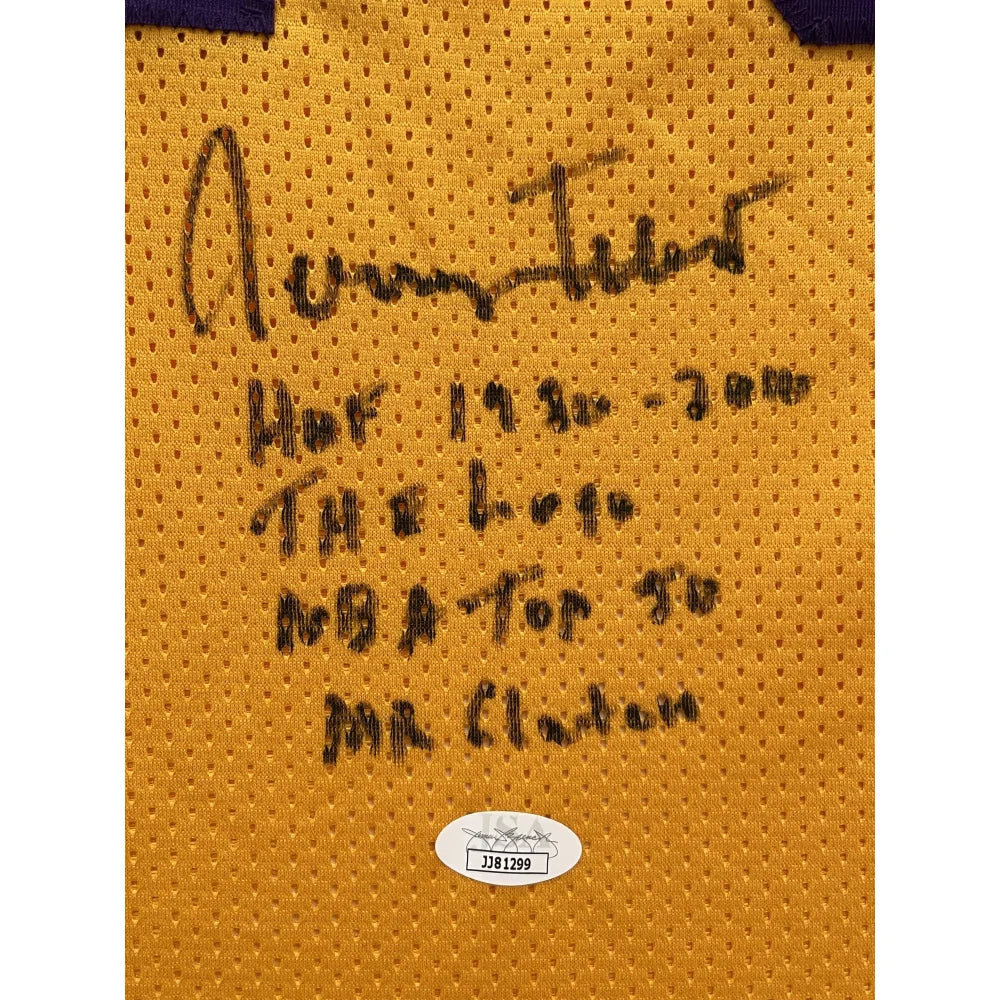 Jerry West
HOF 1980-2010
THE Logo
NBA Top 50
MR Clutch
JSA
JJ81299